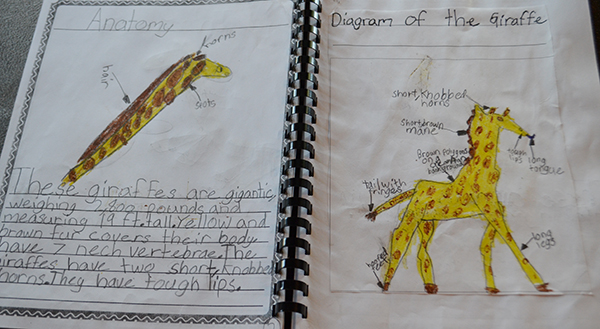 Anatomy
horns
hair
spots
These giraffes are gigantic,
weighing 2,800 pounds and
measuring 19 ft. tall. Yellow and
brown fur covers their body
have 7 nech vertebrae. The
giraffes have two short, knobbed
horns. They have tough lips.
Diagram of the Giraffe
short, knobbed
horns
short brown
mane
Brown polygons
on
background
tough
lips
long
tongue
tail with
fringes
long
legs
hooved
feet